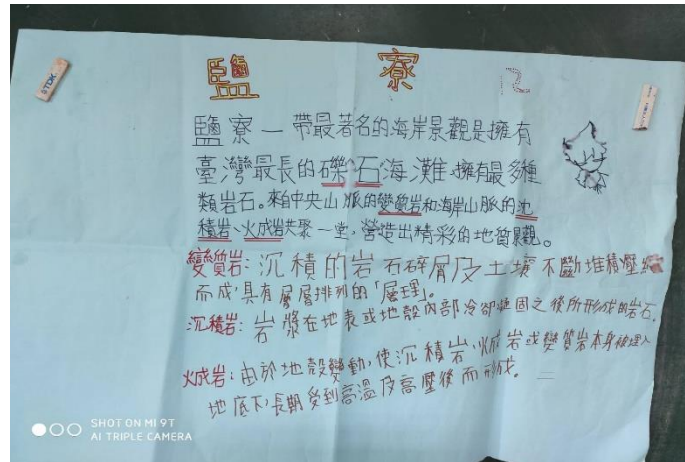 鹽寮
鹽寮一帶最著名的海岸景觀是擁有
臺灣最長的礫石海灘擁有最多種
類岩石。來自中央山脈的變質岩和海岸山脈的沈
積岩、火成岩共聚一堂,營造出精彩的地質景觀。
變質岩:沉積的岩石碎屑及土壤不斷堆積壓縮
而成,具有層層排列的「層理」。
沉積岩:岩漿在地表或地殼內部冷卻凝固之後所形成的岩石。
火成岩:由於地殼變動,使沉積岩、火成岩或變質岩本身被埋入
地底下,長期受到高溫及高壓後而形成。
SHOT ON MI 9T
AI TRIPLE CAMERA